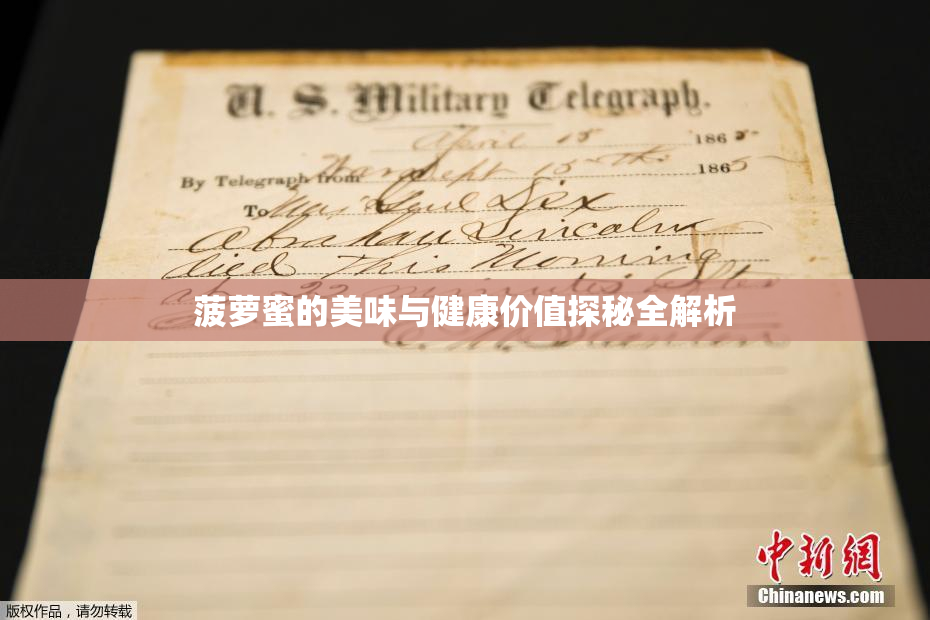 U. S. Military Telegraph.
April 15 1865
By Telegraph from War Dept 15th 1865
To Maj Genl Dix
Abraham Lincoln
died This Morning
at 22 minutes after
菠萝蜜的美味与健康价值探秘全解析
E. M. Stanton
中新网
Chinanews.com
版权作品，请勿转载